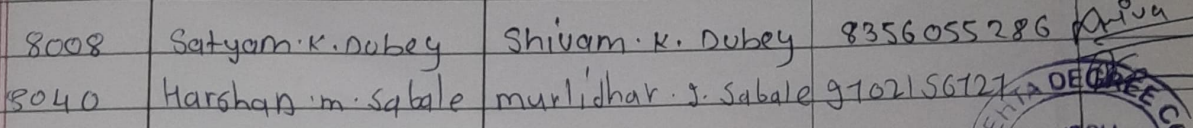 8008 Satyam.K.Dubey Shivam.K.Dubey 8356055286 Shiva
8040 Harshan.m.Sabale murlidhar.g.Sabale 9702156727
EHTA DEGREE C